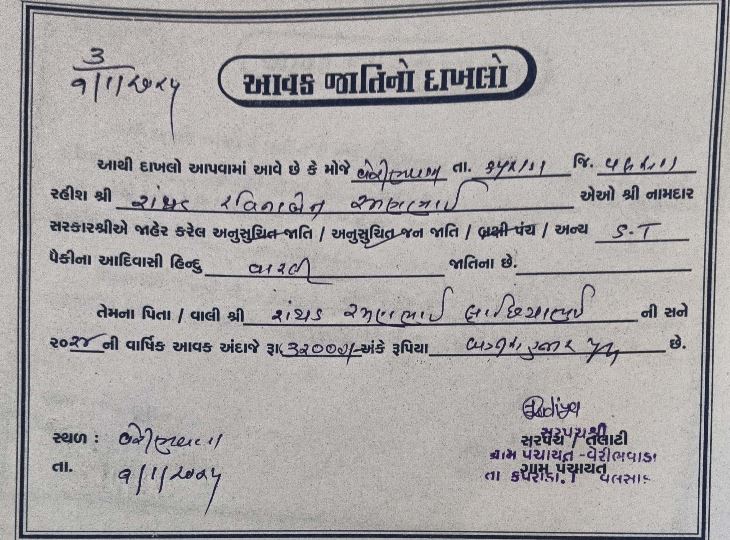 3
૧/૧/૨૦૨૫
આવક જાતિનો દાખલો
આથી દાખલો આપવામાં આવે છે કે મોજે વેરીભવાડા તા. કપરાડા જિ. વલસાડ
રહીશ શ્રી રાંધડ રવિનાબેન રમણભાઈ એઓ શ્રી નામદાર
સરકારશ્રીએ જાહેર કરેલ અનુસુચિત જાતિ / અનુસુચિત જન જાતિ / બક્ષી પંચ / અન્ય S.T
પૈકીના આદિવાસી હિન્દુ વારલી જાતિના છે.
તેમના પિતા / વાલી શ્રી રાંધડ રમણભાઈ ની સને
૨૦૨૪ ની વાર્ષિક આવક અંદાજે રૂા 32000/- અંકે રૂપિયા બત્રીસ હજાર પુરા છે.
સ્થળ : વેરીભવાડા
તા. ૧/૧/૨૦૨૫
સરપંચશ્રી
સરપંચ / તલાટી
ગ્રામ પંચાયત - વેરીભવાડા
ગ્રામ પંચાયત
તા કપરાડા. વલસાડ